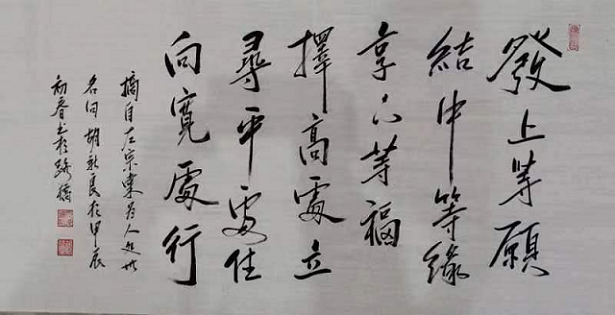 發上等願
結中等緣
享下等福
擇高處立
尋平處住
向寬處行
摘自左宗棠為人處世
名句胡良於甲辰
初春書於